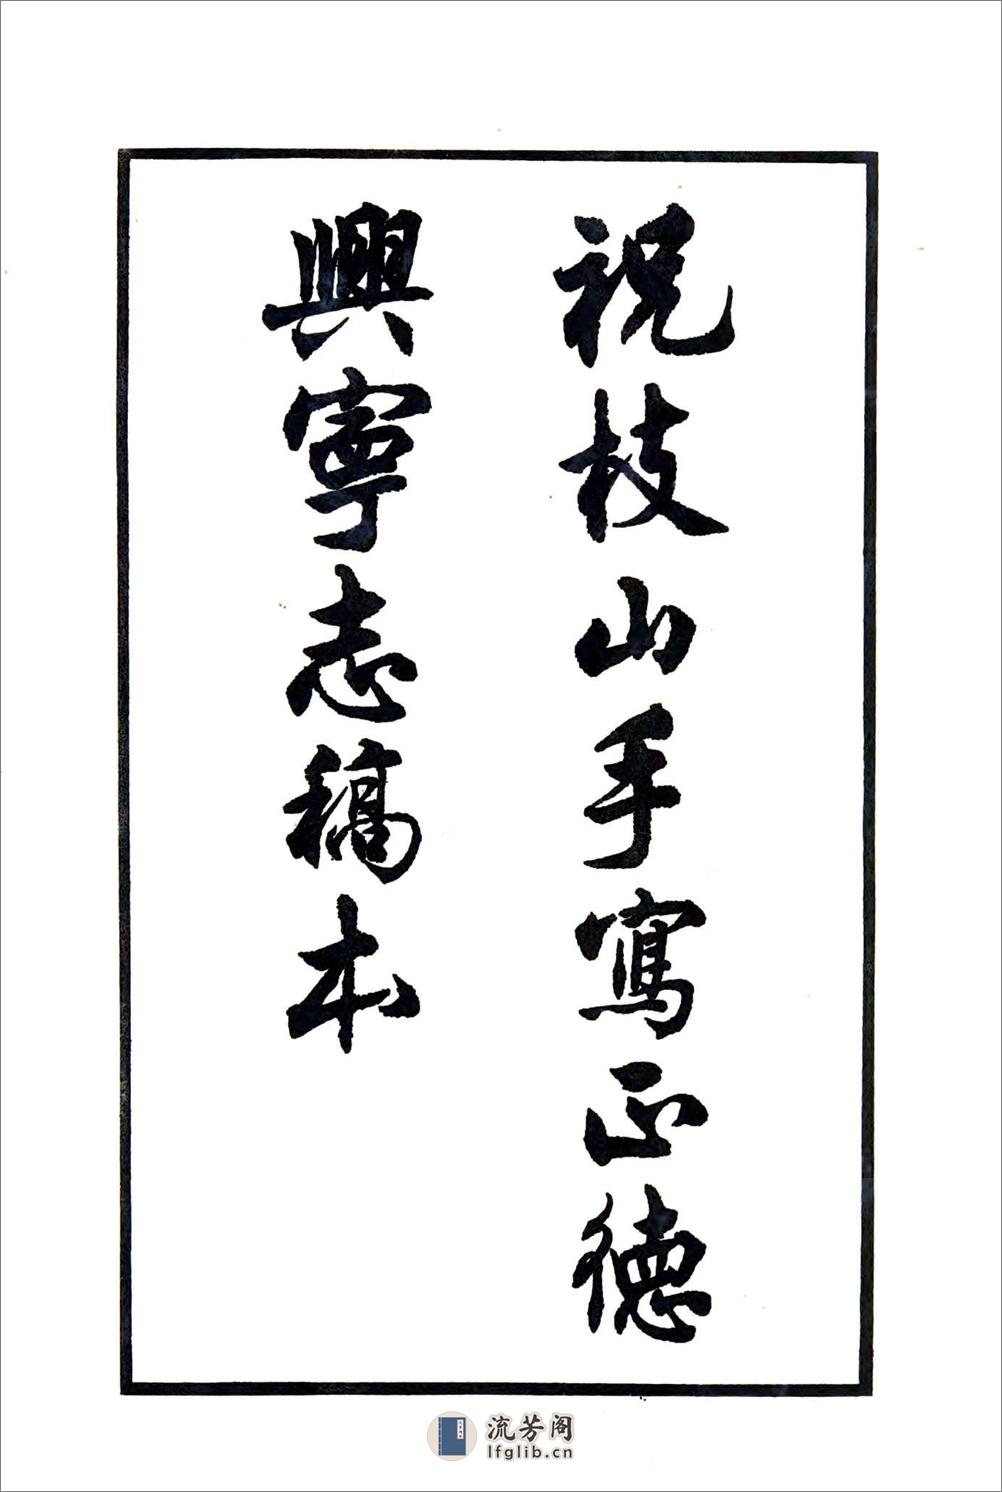 祝枝山手寫正德
興寧志稿本
流芳阁
lfglib.cn